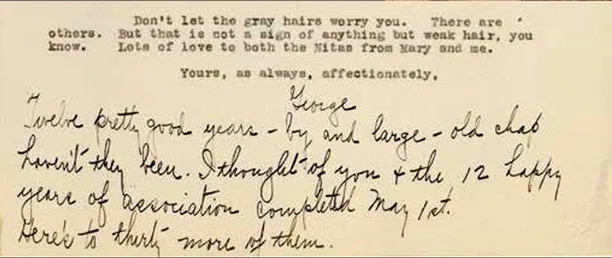 Don't let the gray hairs worry you. There are
others. But that is not a sign of anything but weak hair, you
know. Lots of love to both the Nitas from Mary and me.
Yours, as always, affectionately,
George
Twelve pretty good years - by and large - old chap
haven't they been. I thought of you + the 12 happy
years of association completed May 1st.
Here's to thirty more of them.